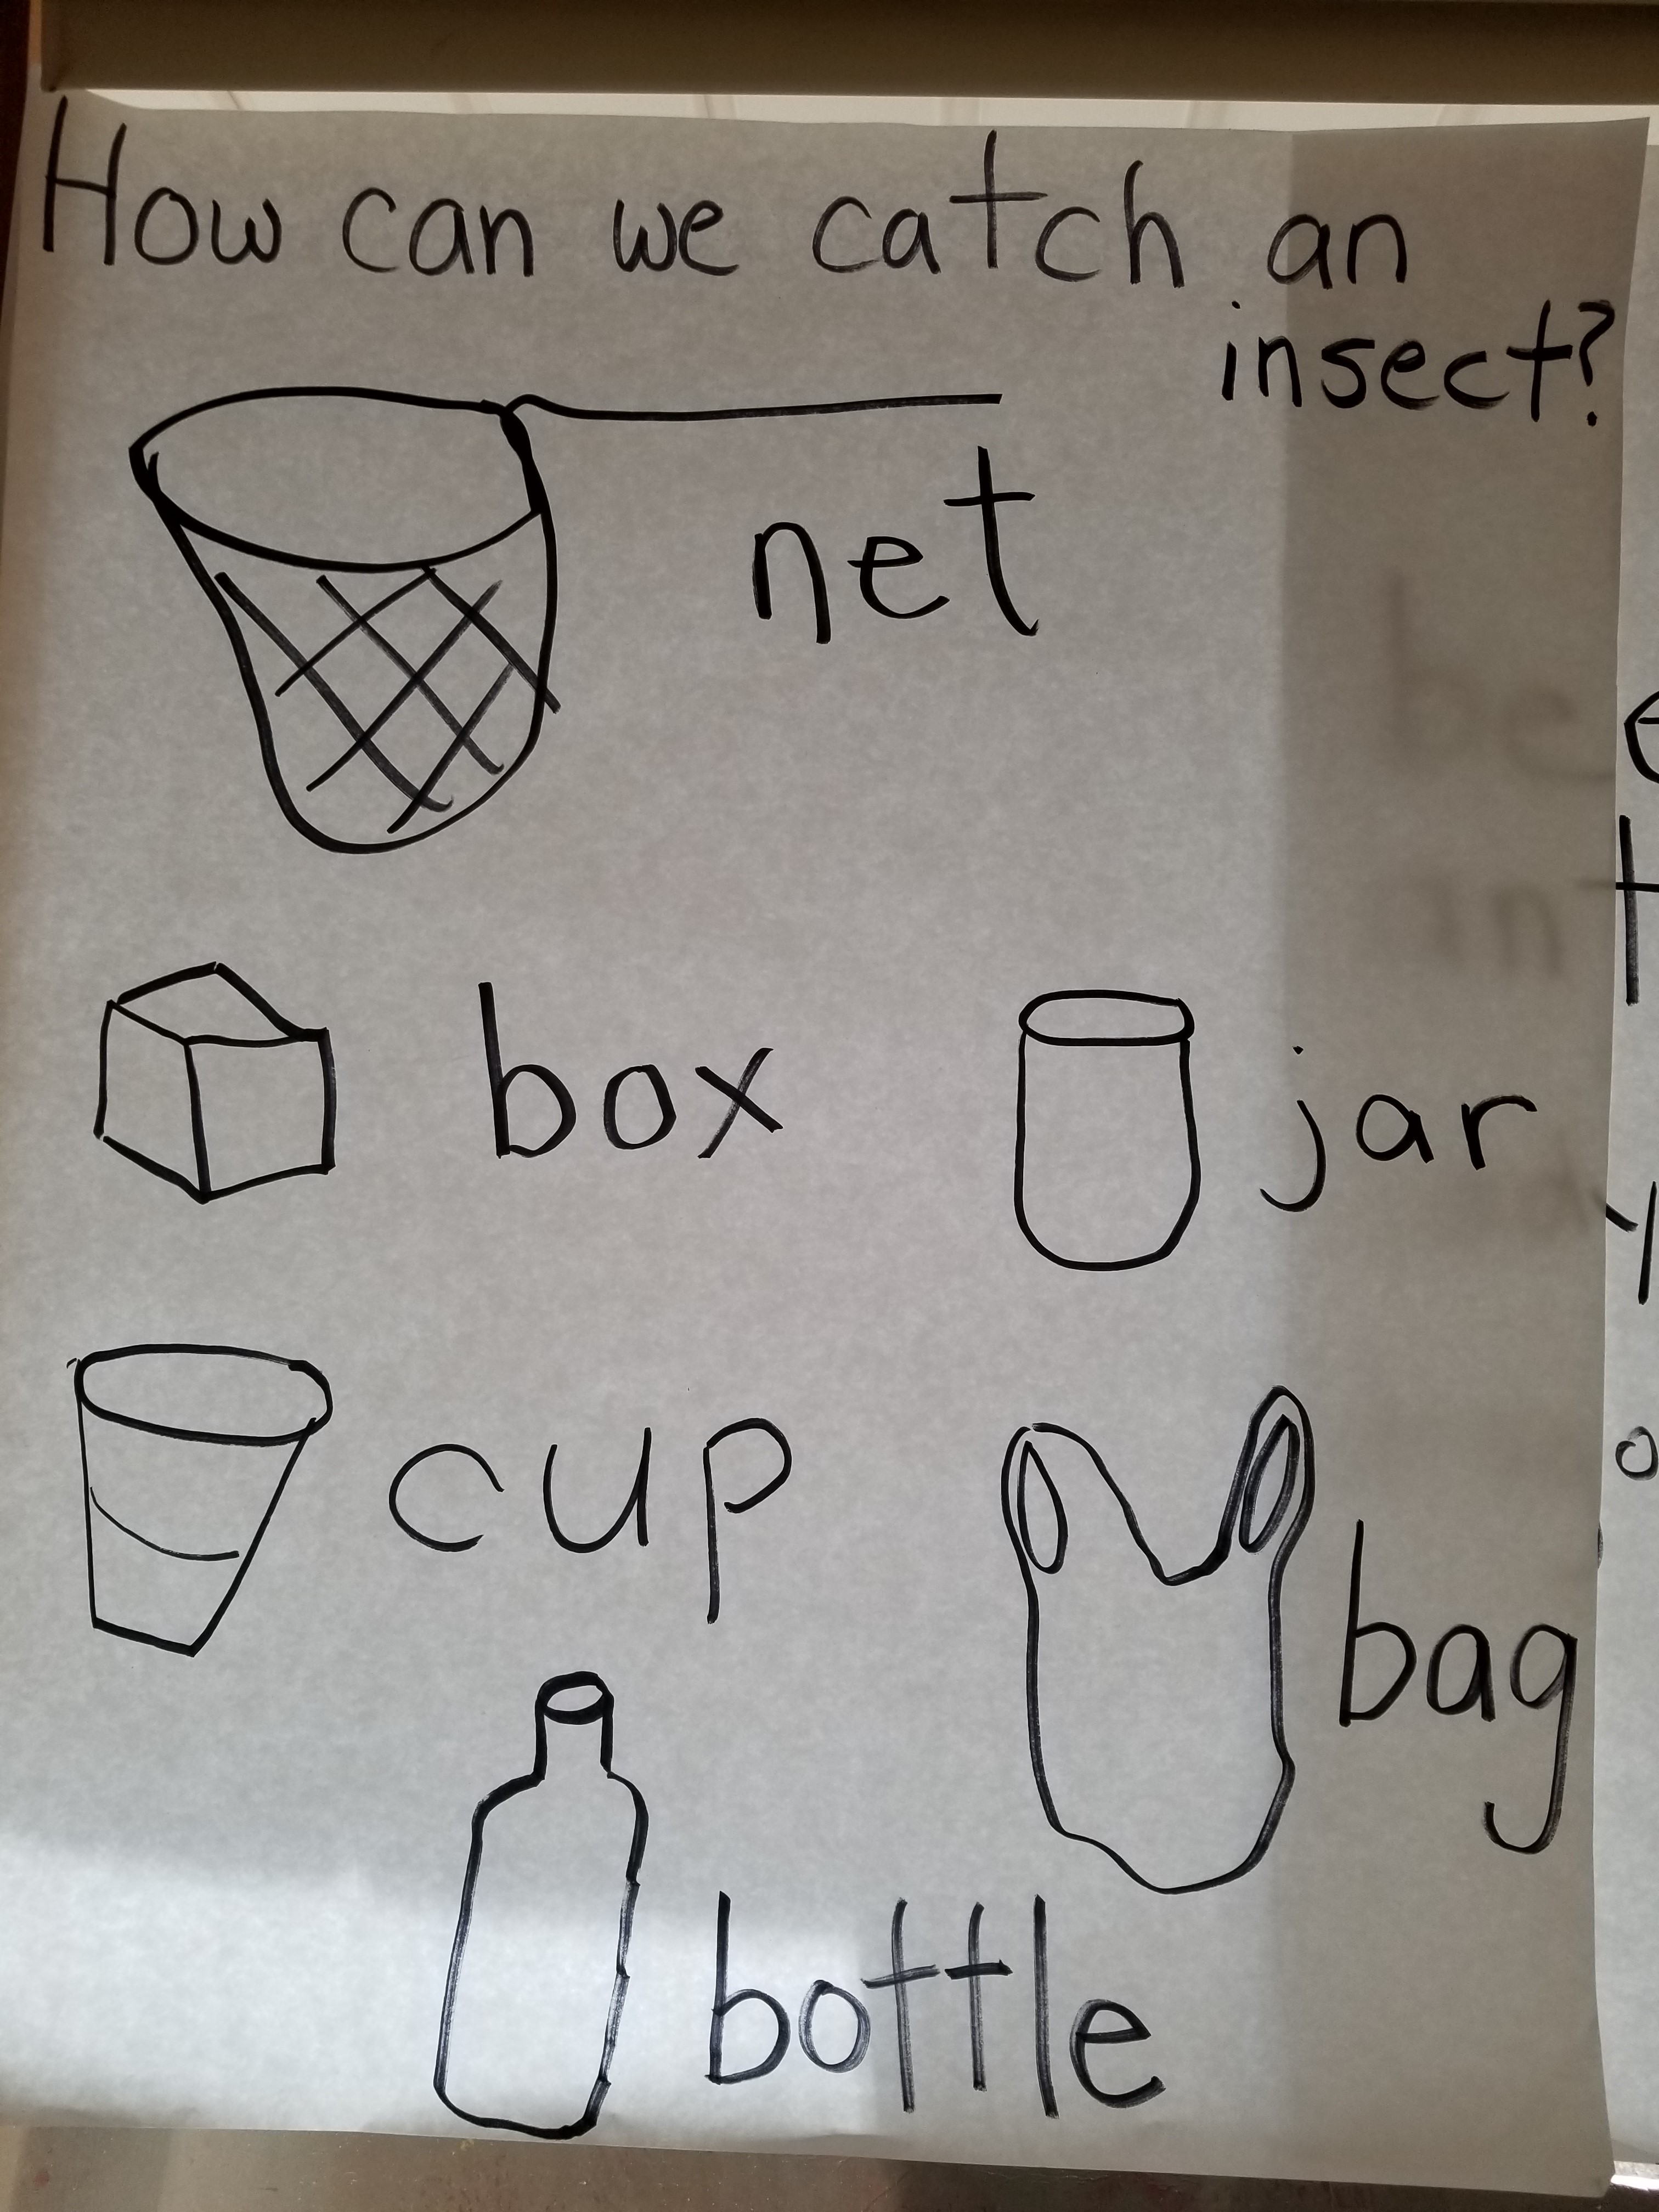 How can we catch an
insect?
net
box
jar
cup
bag
bottle